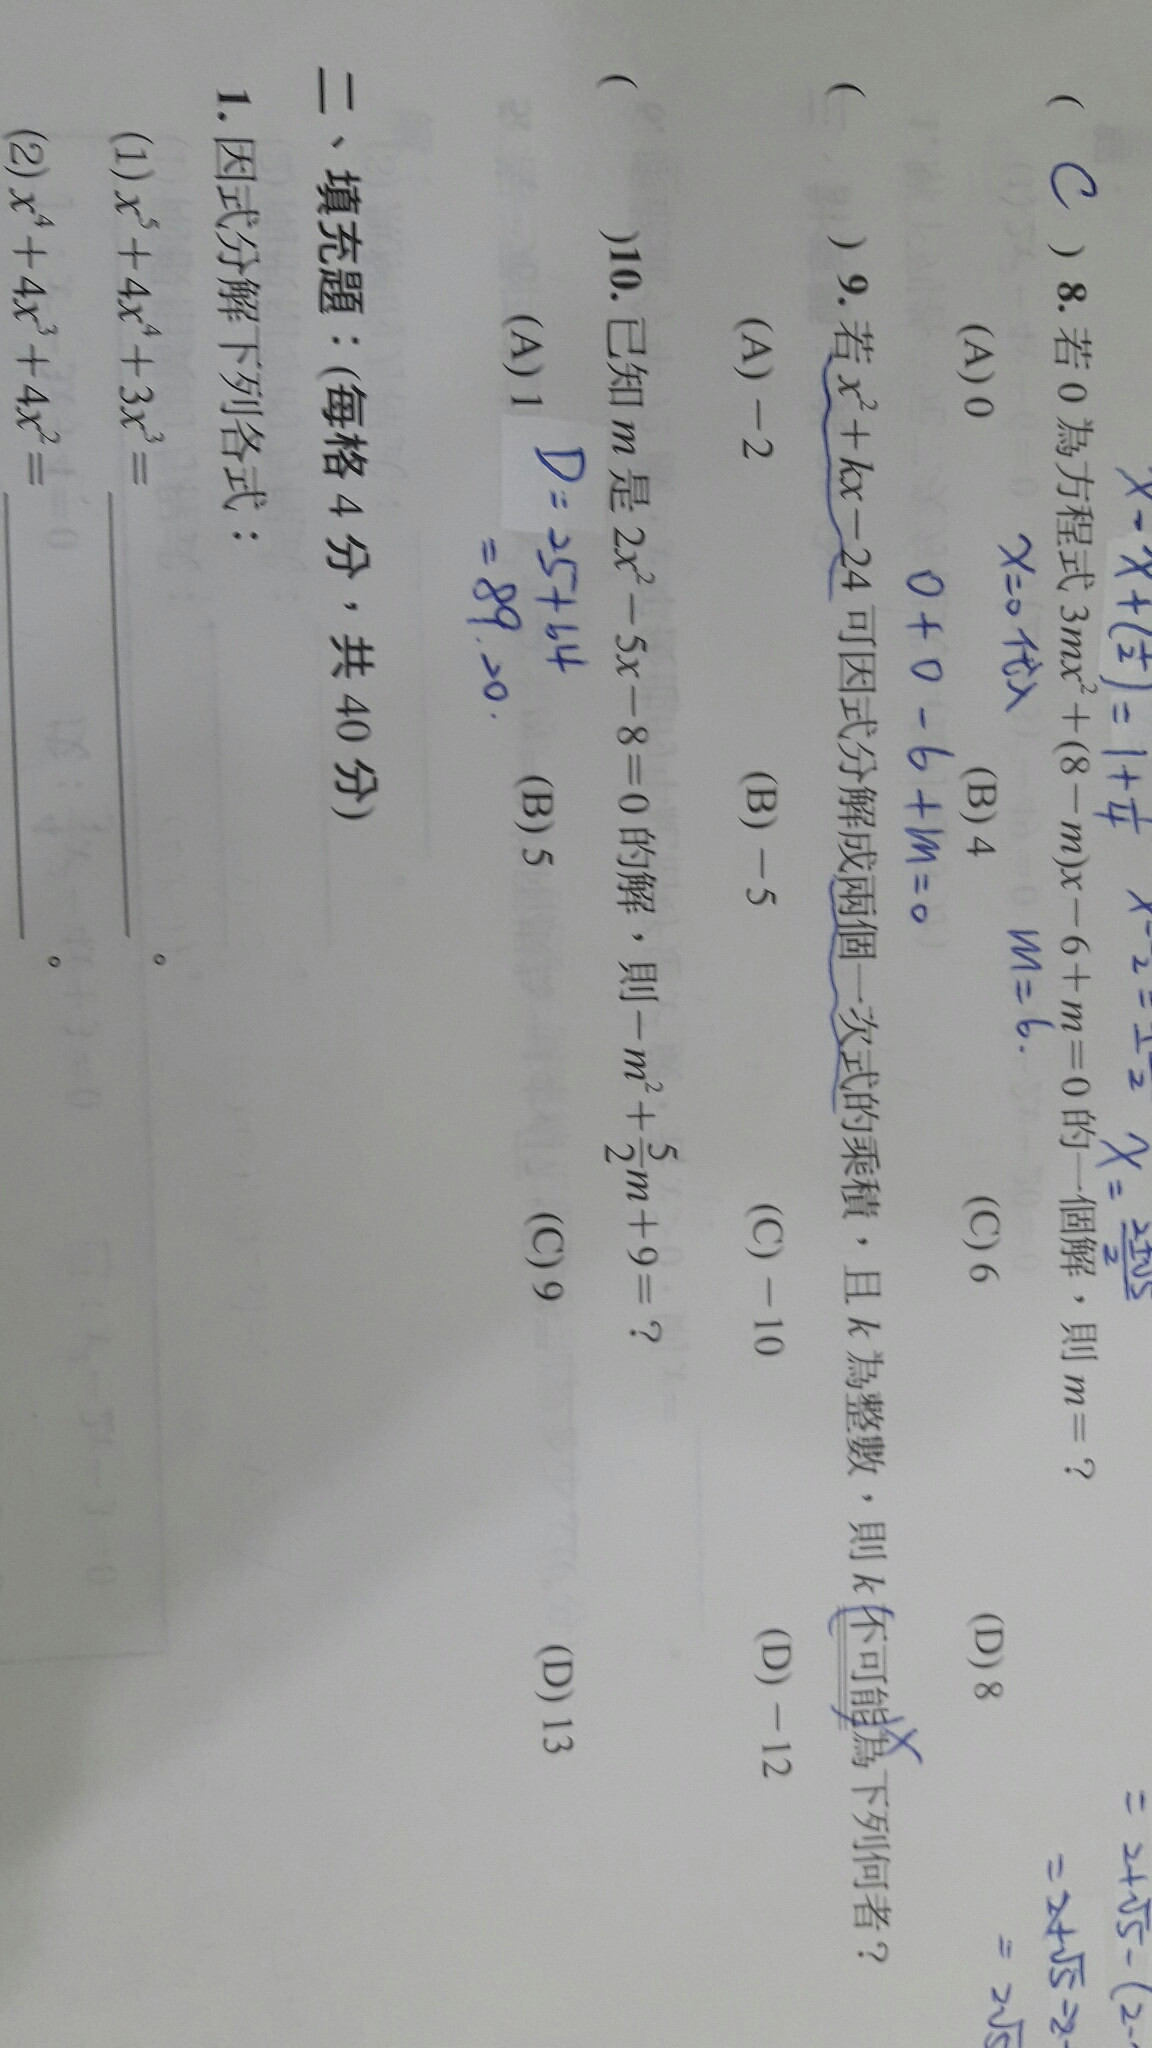 x - x + (1/2) = 1 + 1/4 x - 2 = 2 x = 2±√5/2 = 2+√5 - (2-
= 2+√5 - 2
= 2√5
( C ) 8. 若 0 為方程式 3mx²+(8-m)x-6+m=0 的一個解，則 m=？
x=0 代入 m=6.
(A) 0 (B) 4 (C) 6 (D) 8
0+0-6+m=0
( ) 9. 若 x²+kx-24 可因式分解成兩個一次式的乘積，且 k 為整數，則 k 不可能為下列何者？
(A) -2 (B) -5 (C) -10 (D) -12
( )10. 已知 m 是 2x²-5x-8=0 的解，則 -m²+5/2m+9=？
(A) 1 (B) 5 (C) 9 (D) 13
D=25+64
=89.>0.
二、填充題：(每格 4 分，共 40 分)
1. 因式分解下列各式：
(1) x⁵+4x⁴+3x³= 。
(2) x⁴+4x³+4x²= 。